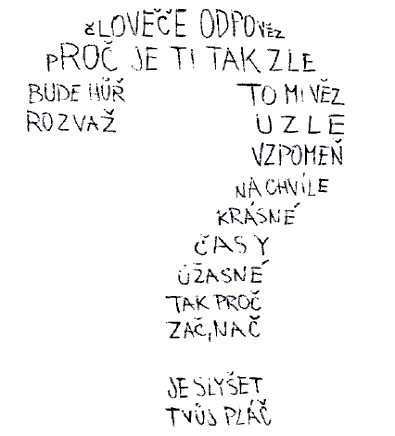 ČLOVĚČE ODPOVĚZ
PROČ JE TI TAK ZLE
BUDE HŮŘ TO MI VĚZ
ROZVAŽ UZLE
VZPOMEŇ
NA CHVÍLE
KRÁSNÉ
ČASY
ÚŽASNÉ
TAK PROČ
ZAČ, NAČ
JE SLYŠET
TVŮJ PLÁČ